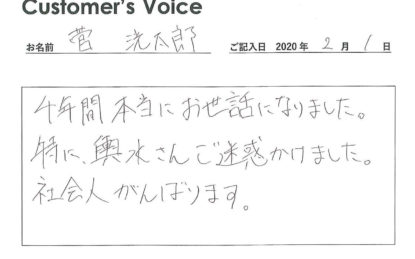 Customer's Voice
お名前 菅 洸太郎 ご記入日 2020年 2月 1日
4年間本当にお世話になりました。
特に、輿水さんご迷惑かけました。
社会人がんばります。